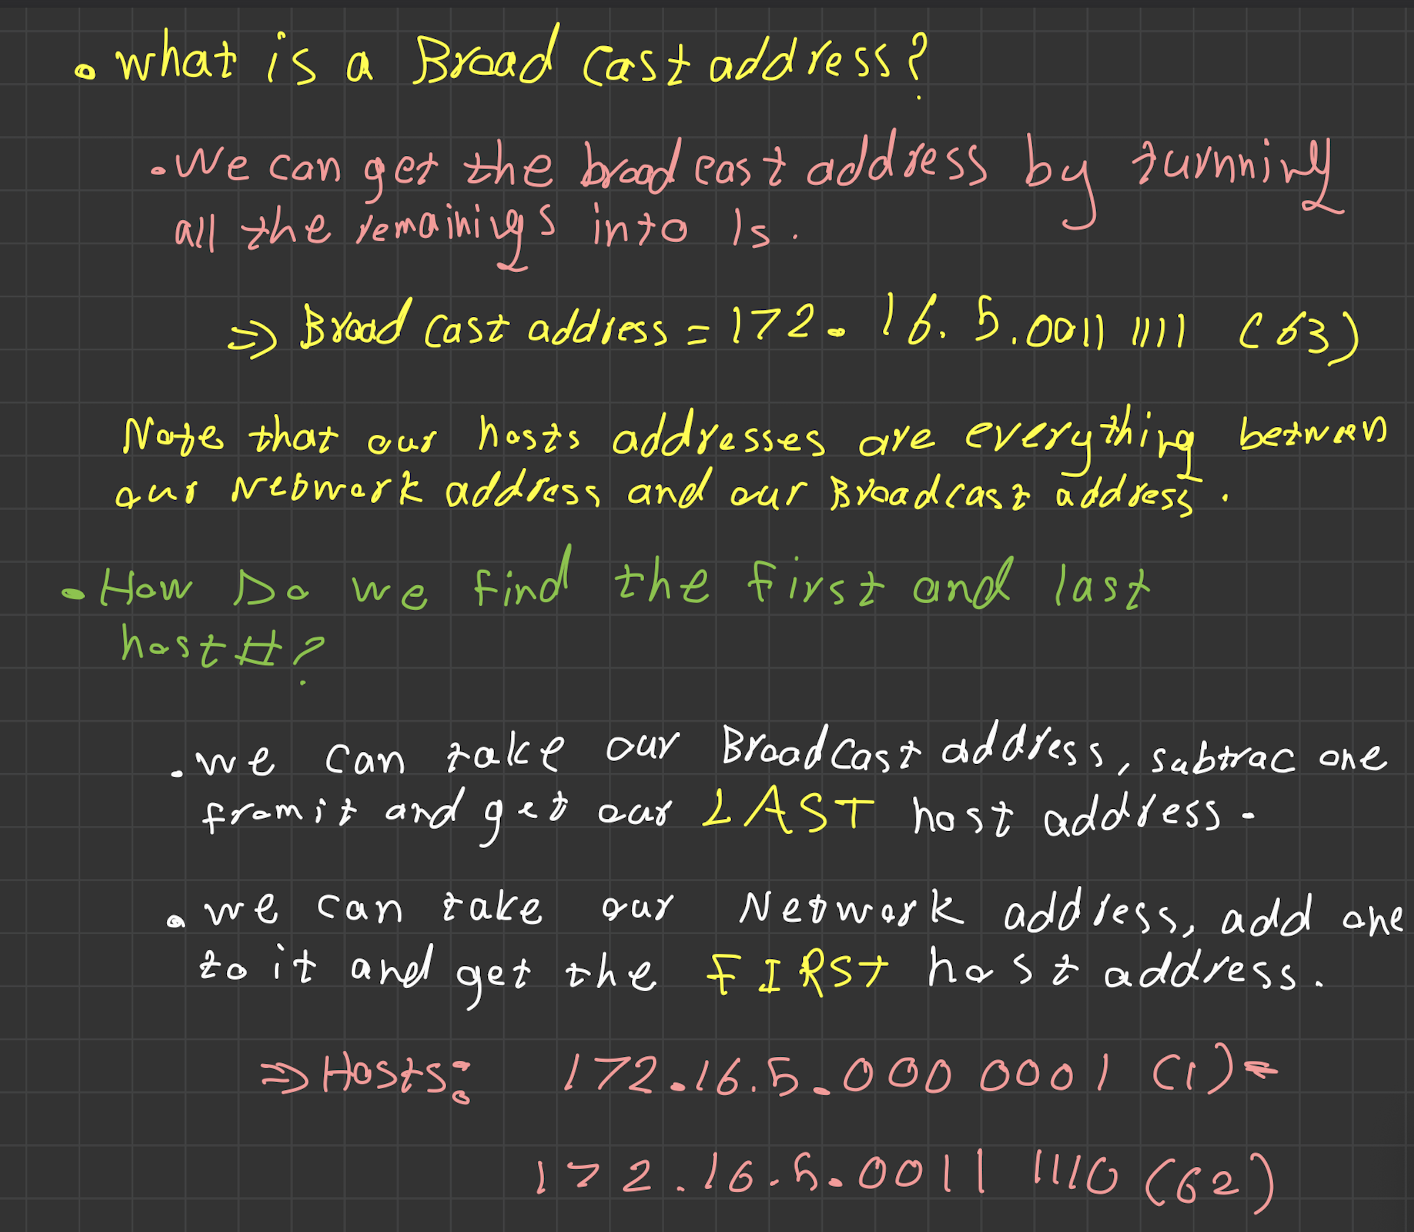 • what is a Broad Cast address?
• We can get the broad cast address by turnning
all the remainings into 1s.
⇒ Broad Cast address = 172. 16. 5.0011 1111 (63)
Note that our hosts addresses are everything between
our Network address and our Broadcast address.
• How Do we find the first and last
host#?
• we can take our BroadCast address, subtrac one
from it and get our LAST host address.
• we can take our Network address, add one
to it and get the FIRST host address.
⇒ Hosts: 172.16.5.000 0001 (1) -
172.16.5.0011 1110 (62)